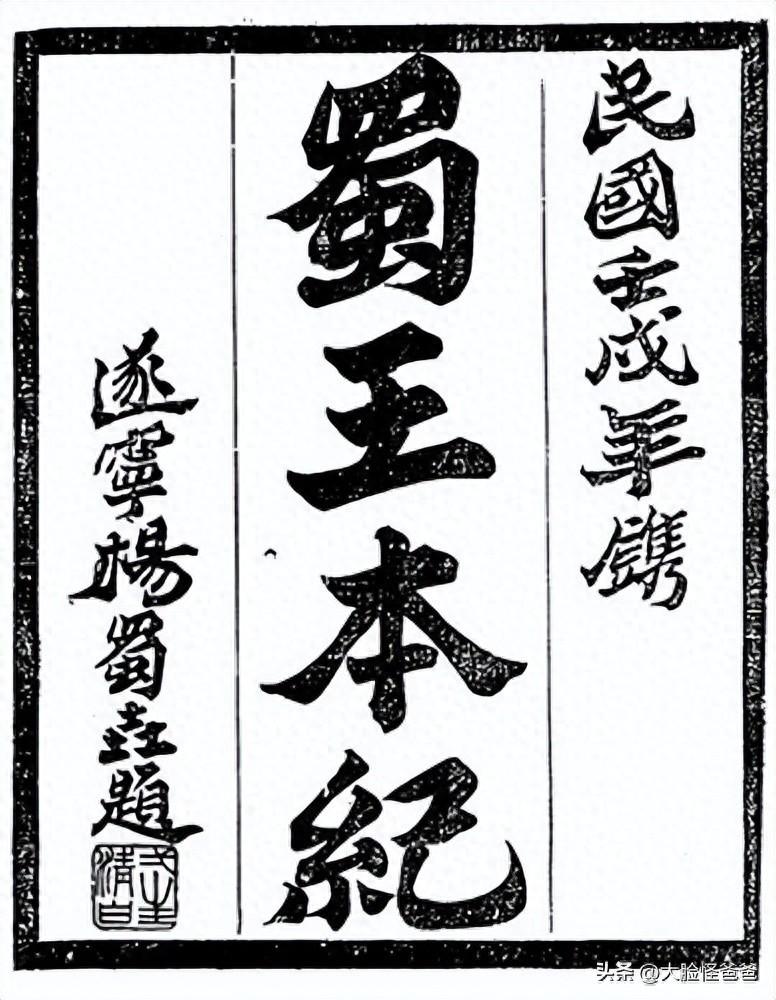 民國壬戌年鐫
蜀王本紀
遂寧楊蜀題
清白
头条 @大脸怪爸爸